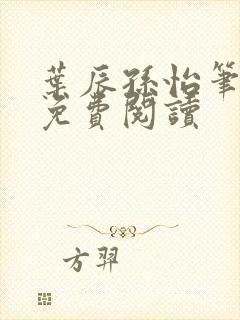 葉辰孫怡筆
免費閱讀
方羿